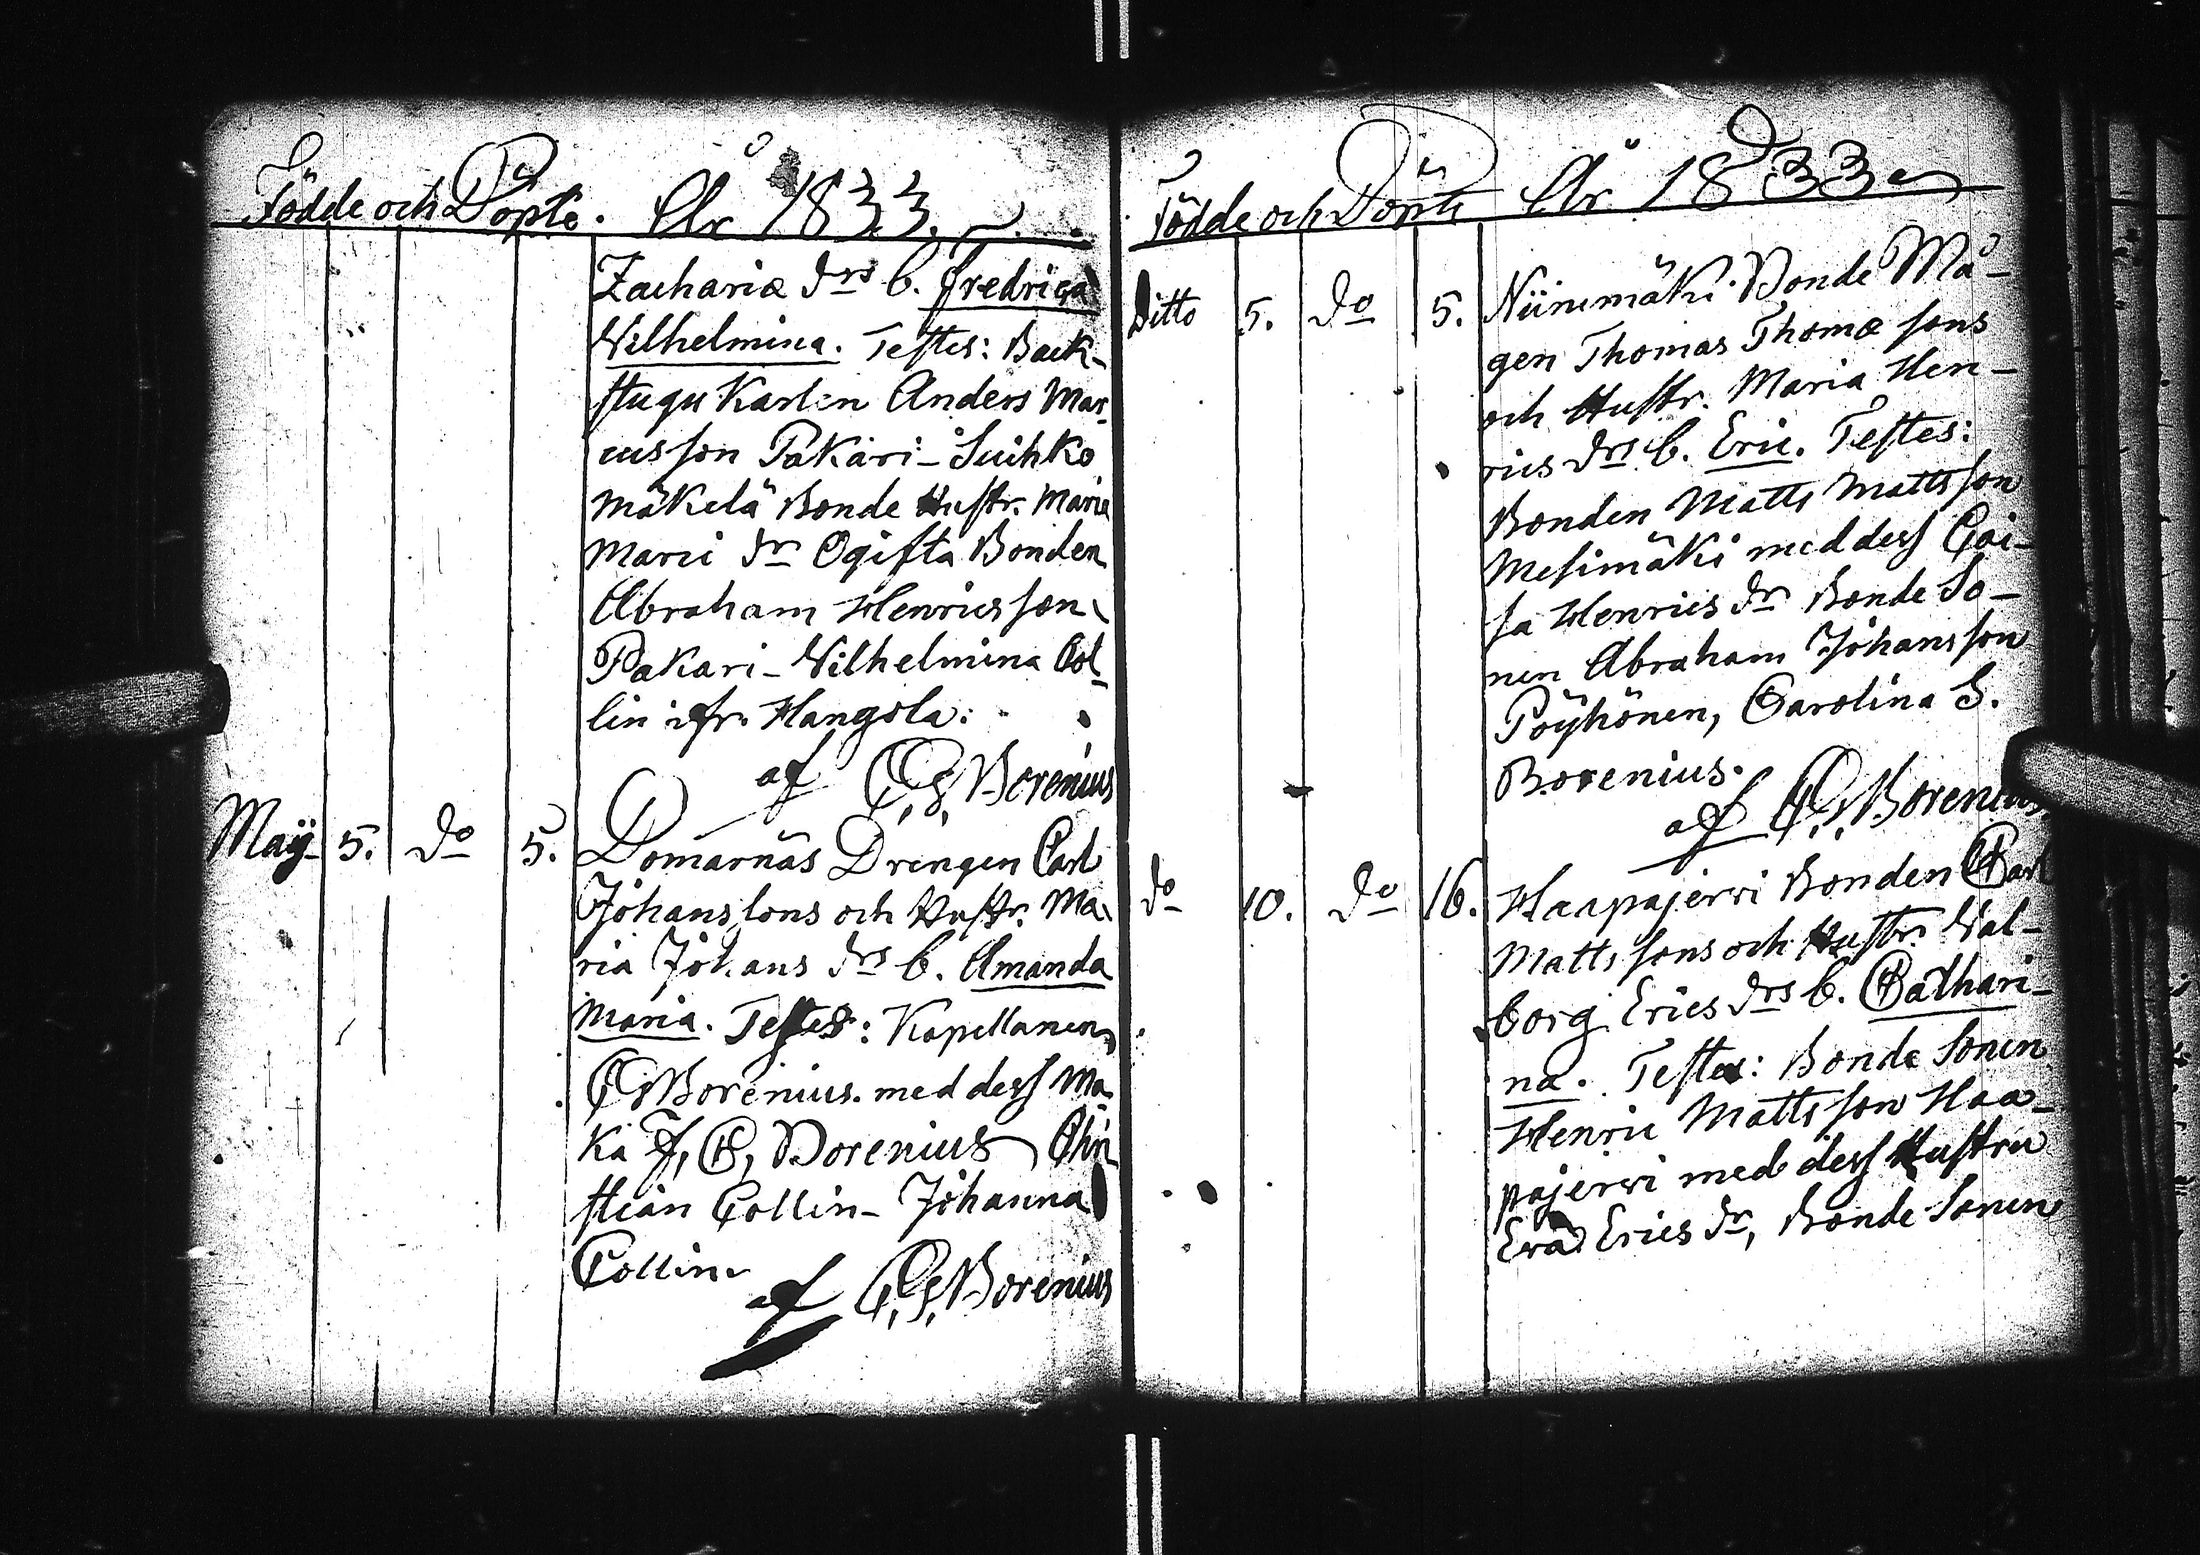 Födde och Döpte. År 1833.
Zachariæ drs b. Fredrica
Wilhelmina. Testes: Back-
stugu Karlen Anders Mar-
cusson Pakari - Suihko
mäkelä Bonde Hustr. Maria
Marci dr Ogifta Bonden
Abraham Henricsson
Pakari - Wilhelmina Col-
lin ifr. Hangola:
af C. G. Borenius
Maÿ 5. do 5. Domarnäs Drengen Carl
Johanssons och Hustr. Ma-
ria Johans drs b. Amanda
Maria. Testes: Kapellanen
C G Borenius med dess Ma-
ka F, C, Borenius Chri-
stian Collin - Johanna
Collin.
af C. G. Borenius
Födde och Döpte År 1833
Ditto 5. do 5. Niinimäki Bonde Må-
gen Thomas Thomæ sons
och Hustr. Maria Hen-
rics drs b. Eric. Testes:
Bonden Matts Mattsson
Mesimäki med dess Cai-
sa Henrics dr Bonde So-
nen Abraham Johansson
Pöyhönen, Carolina S.
Borenius.
af C. G. Borenius
do 10. do 16. Haapajerwi Bonden Carl
Matts sons och Hustr. Wal-
borg Erics drs b. Cathari-
na. Testes: Bonde Sonen
Henric Mattsson Haa-
pajerwi med dess Hustru
Eva Erics dr, Bonde Sonen